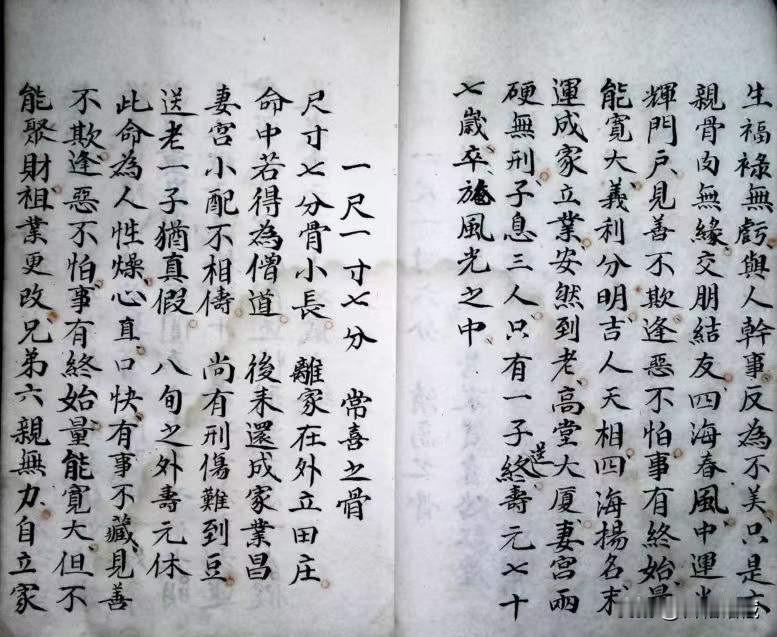 生福祿無虧與人幹事反為不美只是六
親骨肉無緣交朋結友四海春風中運光
輝門戶見善不欺逢惡不怕事有終始量
能寬大義利分明吉人天相四海揚名末
運成家立業安然到老高堂大厦妻宮兩
硬無刑子息三人只有一子送終壽元七十
七歲卒於風光之中
一尺一寸七分 常喜之骨
尺寸七分骨小長 離家在外立田庄
命中若得為僧道 後来還成家業昌
妻宮小配不相儔 尚有刑傷難到豆
送老一子猶真假 八旬之外壽元休
此命為人性燥心直口快有事不藏見善
不欺逢惡不怕事有終始量能寬大但不
能聚財祖業更改兄弟六親無力自立家